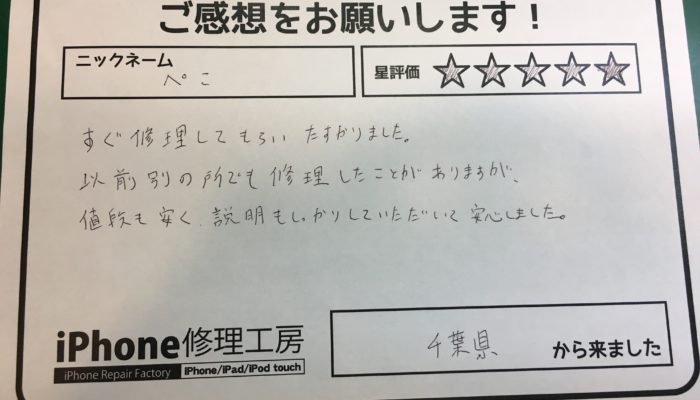 ご感想をお願いします！
ニックネーム
ぺこ
星評価
すぐ修理してもらい たすかりました。
以前別の所でも修理したことがありますが、
値段も安く、説明もしっかりしていただいて安心しました。
iPhone修理工房
iPhone Repair Factory iPhone/iPad/iPod touch
千葉県 から来ました